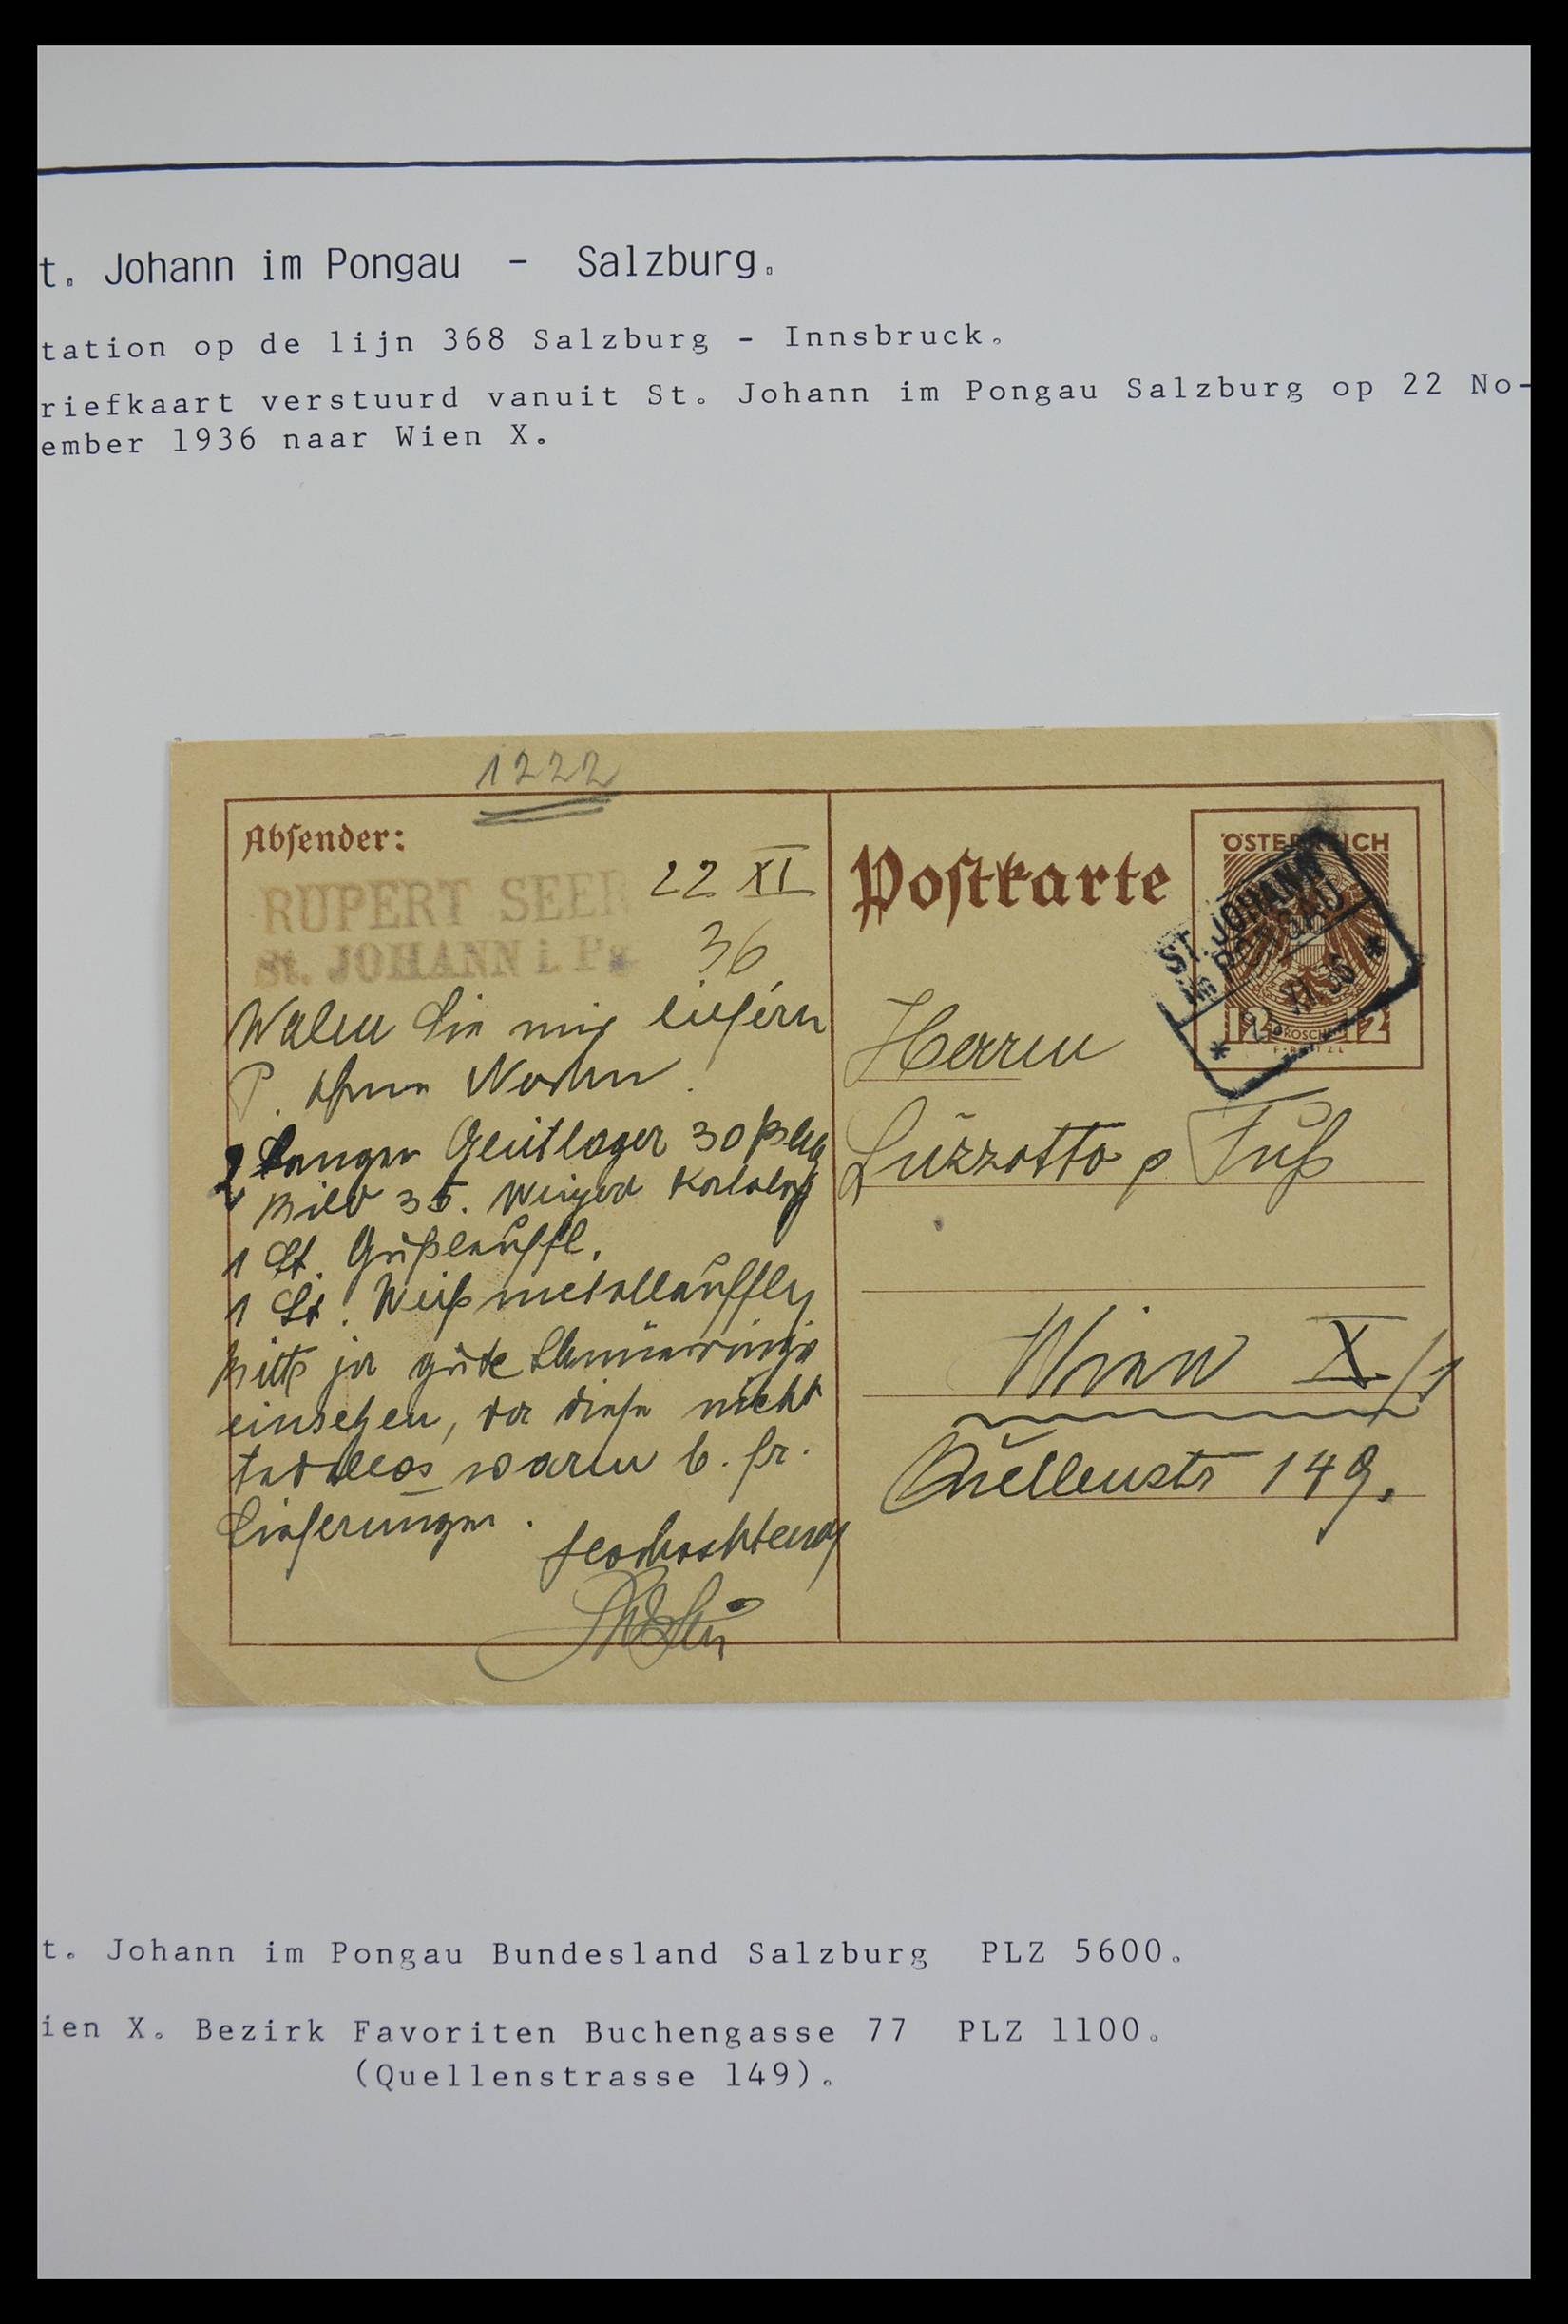 t. Johann im Pongau - Salzburg.
tation op de lijn 368 Salzburg - Innsbruck.
riefkaart verstuurd vanuit St. Johann im Pongau Salzburg op 22 No-
ember 1936 naar Wien X.
1222
Absender:
RUPERT SEER
St. JOHANN i. Pg.
22 XI
36
Postkarte
ÖSTERREICH
ST. JOHANN
im PONGAU
XI. 36
12 GROSCHEN 12
Sie mir liefern
P.
Gleitlager 30
Bild 35. Katalog
1 St.
1 St. Weißmetallaufflg
Bitte ja gute
einsetzen, da diese nicht
tadellos waren b. fr.
Lieferungen.
Hochachtend
Herrn
Luzzatto & Fuß
Wien X/1
Quellenstr 149.
t. Johann im Pongau Bundesland Salzburg PLZ 5600.
ien X. Bezirk Favoriten Buchengasse 77 PLZ 1100.
(Quellenstrasse 149).